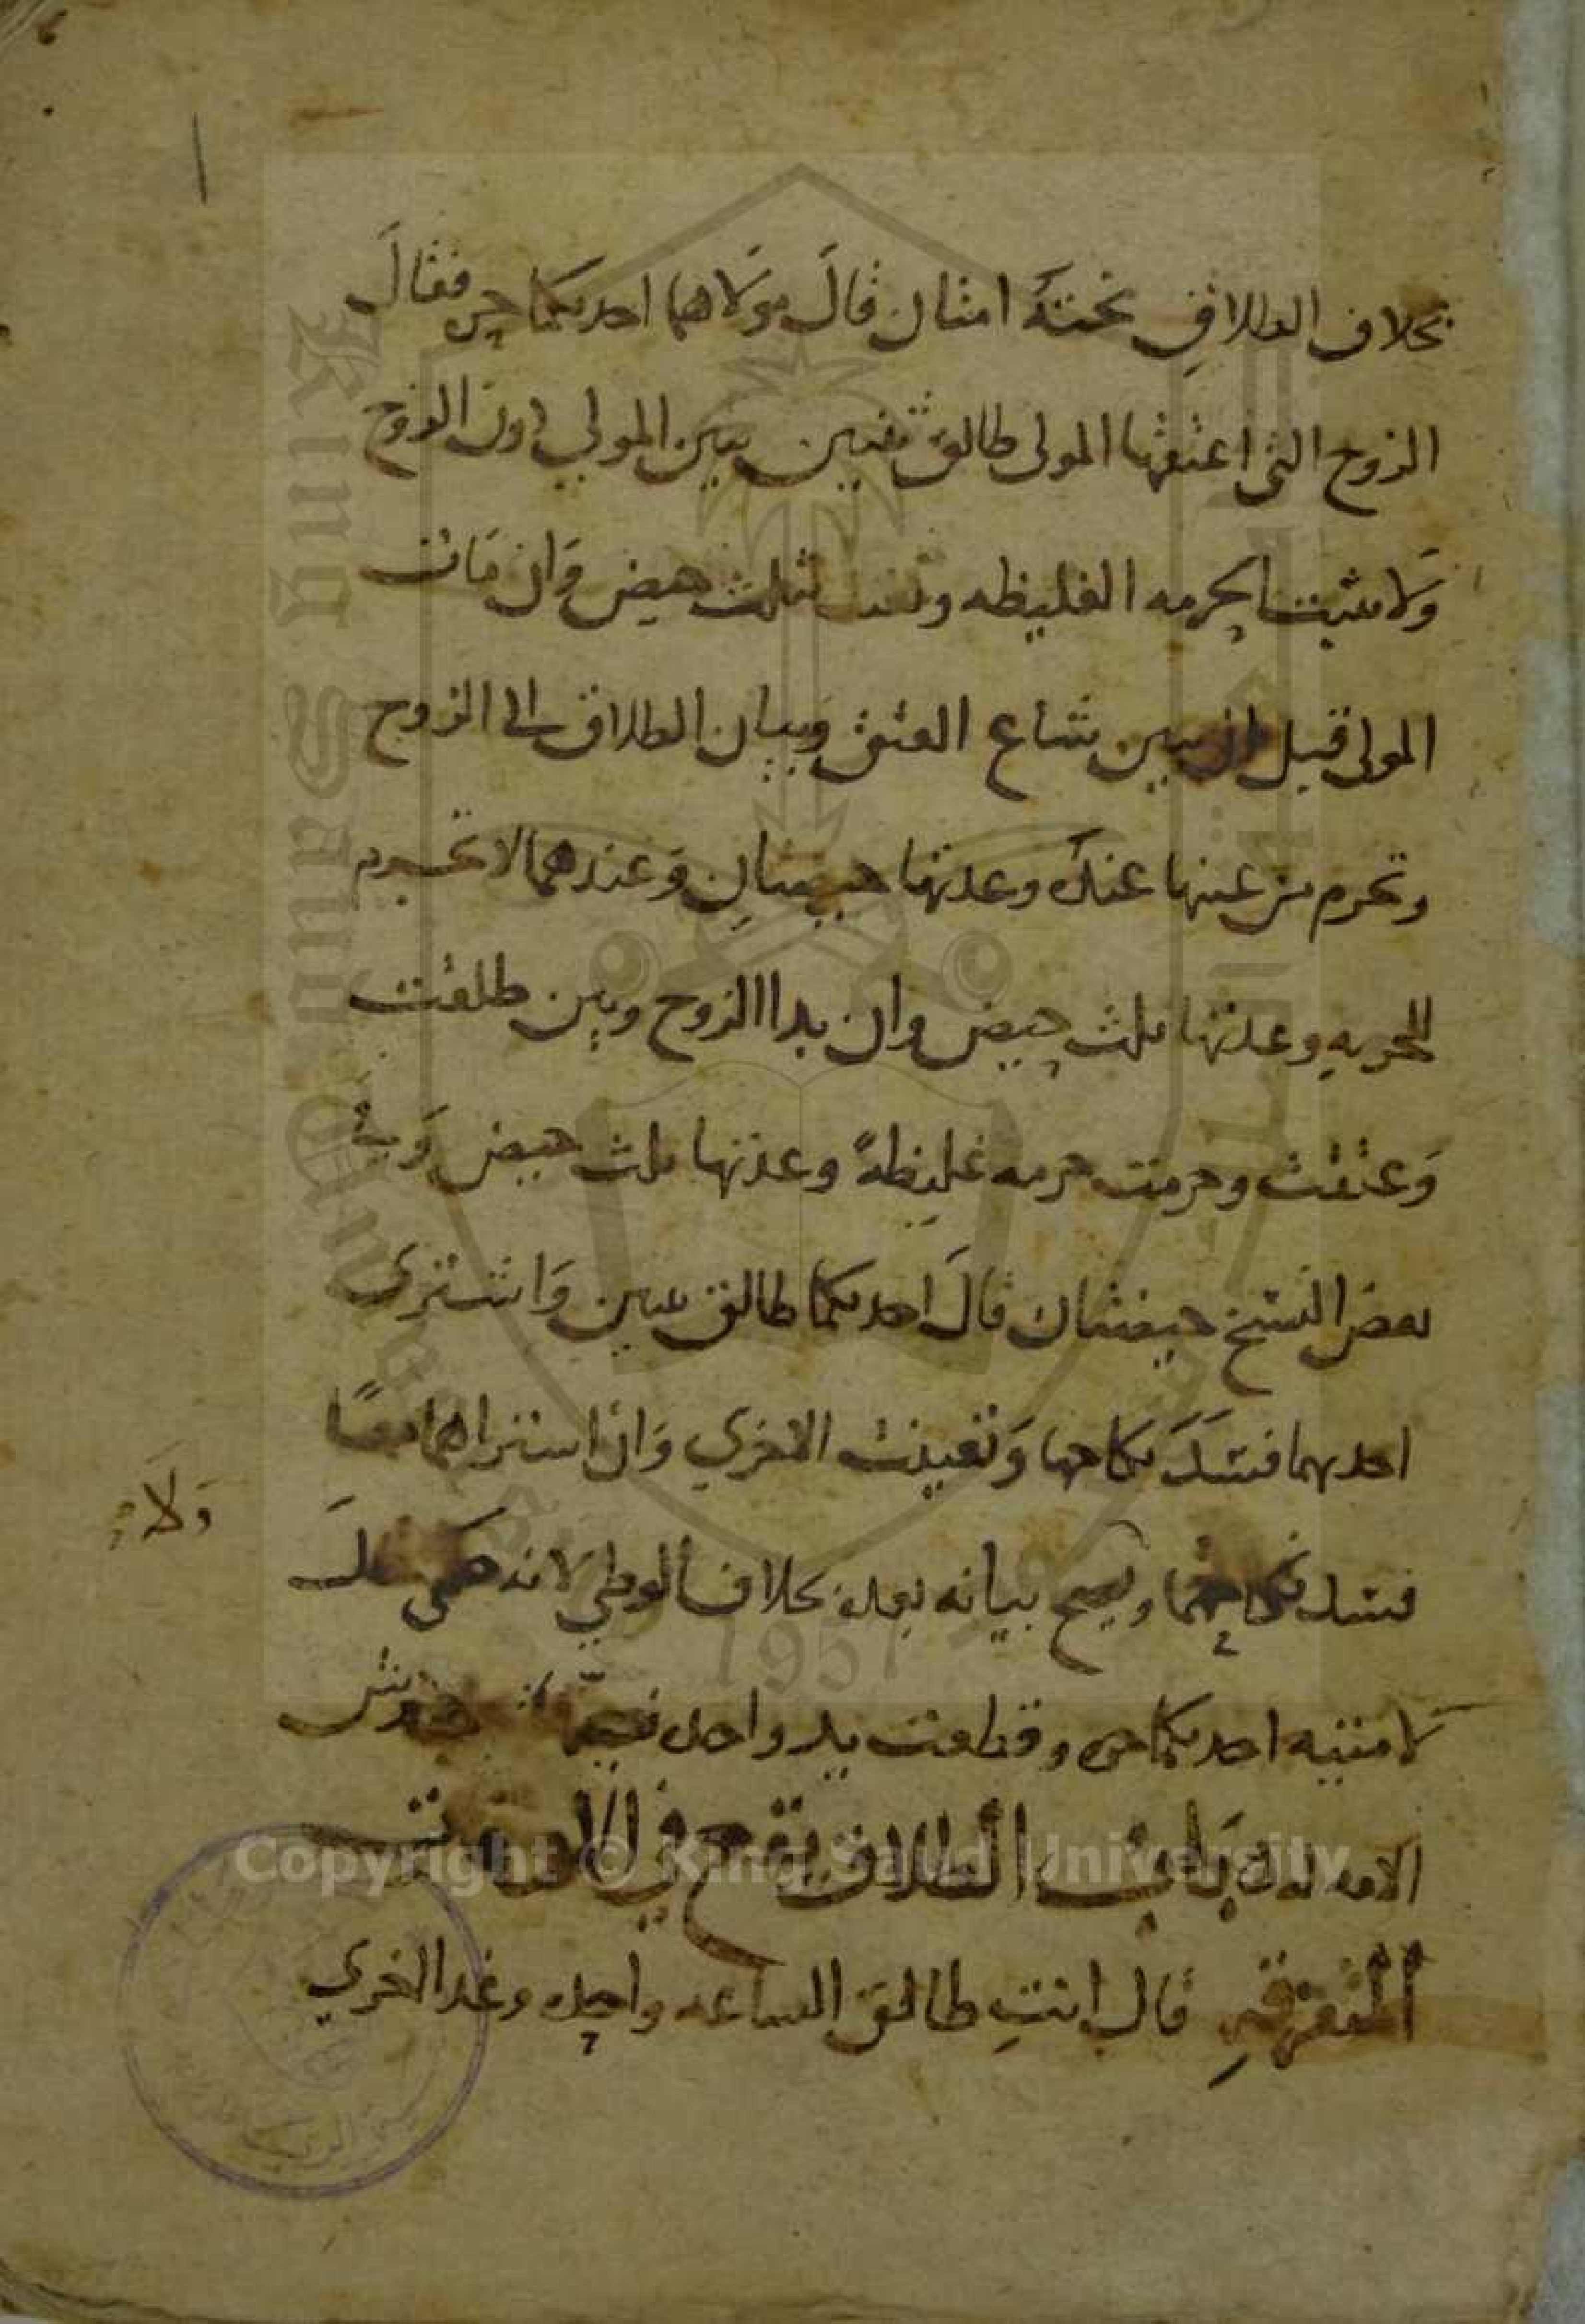 بخلاف الطلاق تحته امتان قال مولاهما احدىكما حره فقال
الزوج التي اعتقها المولى طالق ثنتين يبين المولي دون الزوج
ولا تثبت الحرمه الغليظه وتعتد بثلث حيض وان مات
المولى قبل ان يبين شاع العتق وبيان الطلاق الى الزوج
وتحرم من عينها عنده وعدتها حيضتان وعندهما لا تحرم
للحريه وعدتها ثلث حيض وان بدا الزوج وبين طلقت
وعتقت وحرمت حرمه غليظة وعدتها ثلث حيض وفي
بعض النسخ حيضتان قال احدىكما طالق ثنتين واشترى
احدىهما فسد نكاحها وتعينت الاخري وان اشتراهما معا
فسد نكاحهما ويصح بيانه بعده بخلاف الوطي لانه
ولا
لامتيه احدىكما حره وقطعت يد واحده
الامه له باب الطلاق يقع في الاوقات
المتفرقه قال انت طالق الساعه واحده وغدا اخري
Copyright © King Saud University
King Saud University
1957